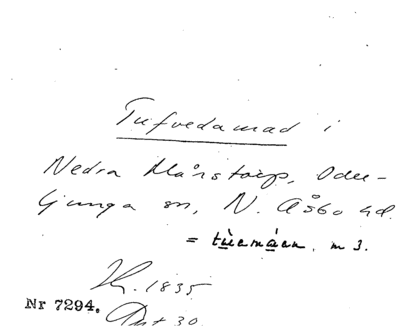 Tufvedamad i
Nedra Månstorp, Oder-
ljunga sn, N. Åsbo hd.
= tùemáen. m 3.
H. 1835
Nr 7294.
Ant 30.